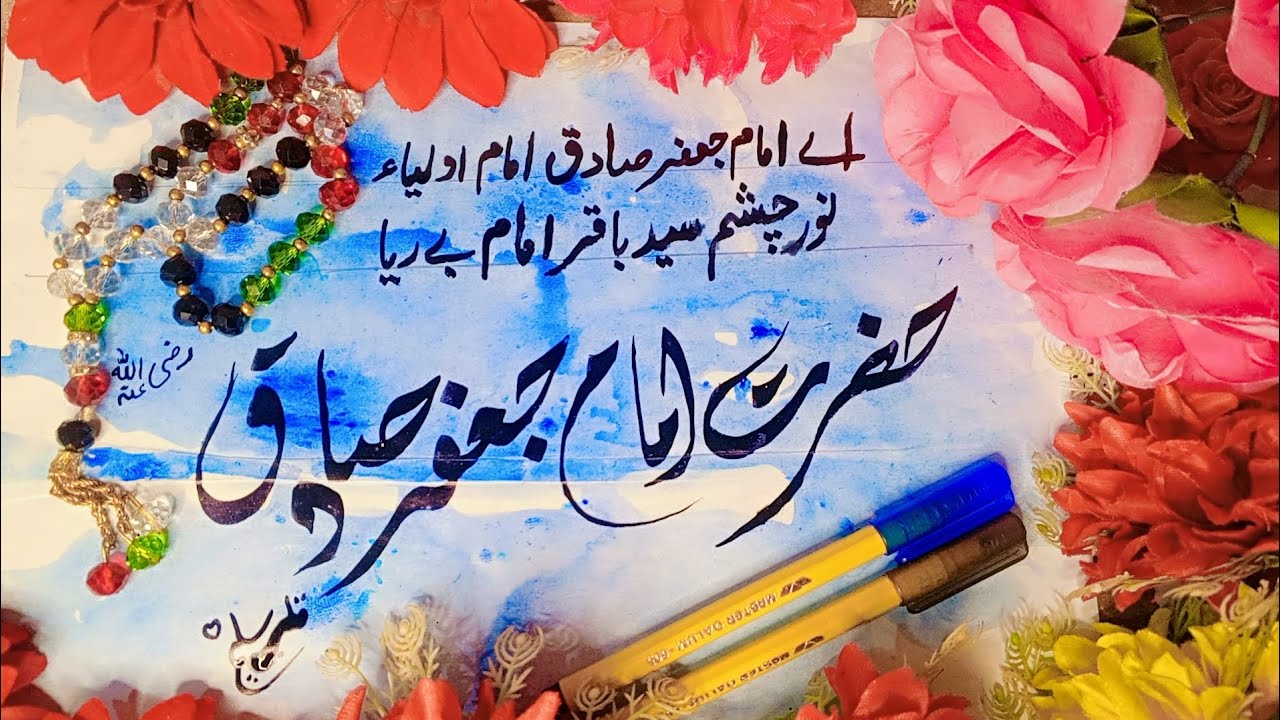 اے امام جعفر صادق امام اولیاء
نور چشم سید باقر امام بے ریا
حضرت امام جعفر صادق
رضی اللہ عنہ
MASTER QALUM-605
MASTER QALUM